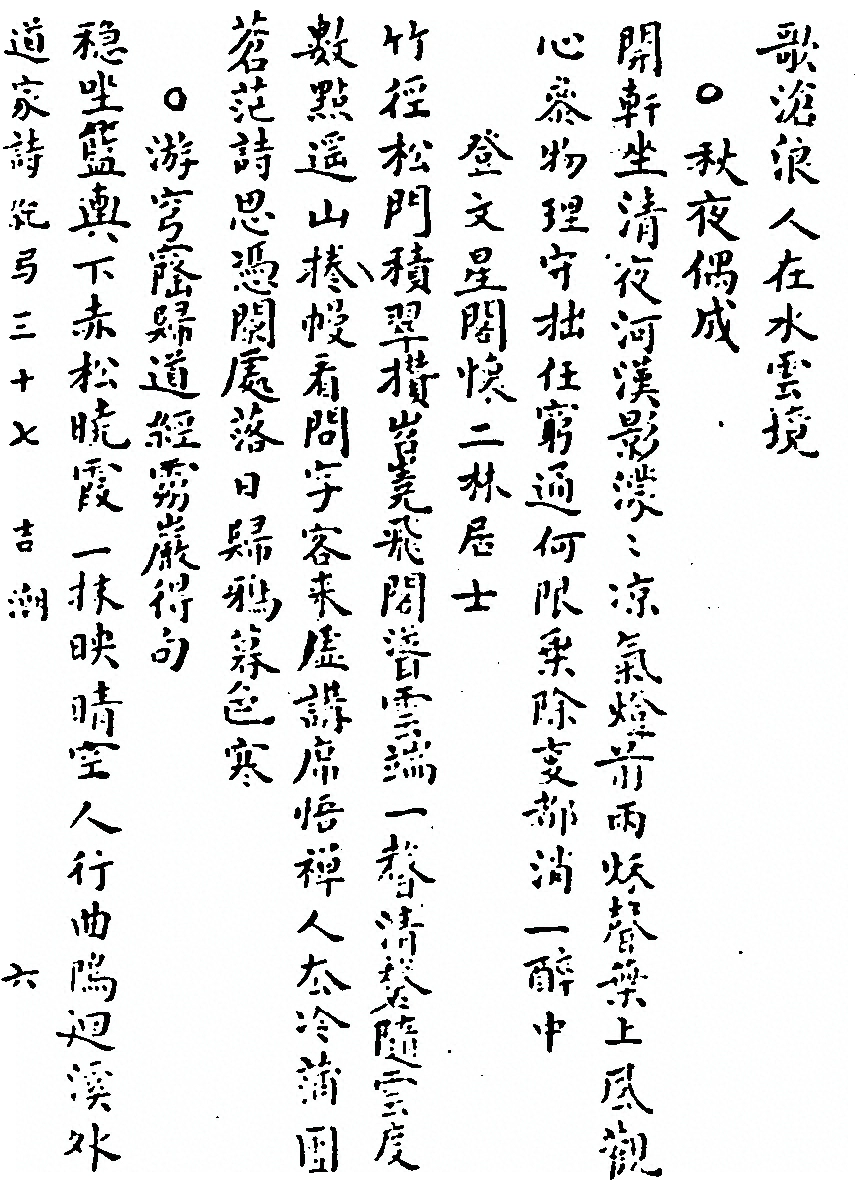 歌滄浪人在水雲境
○秋夜偶成
開軒坐清夜河漢影濛〻凉氣燈前雨烁聲葉上風觀
心叅物理守拙任窮通何限乗除变都消一醉中
登文星閣懷二林居士
竹徑松門積翠攢岧嶤飛閣㬱雲端一聲清磬隨雲度
數點遥山捲幔看問字客来虛講席悟禪人厺冷蒲團
蒼茫詩思憑闌處落日歸鴉暮色寒
○游穹窿歸道經雾巖得句
稳坐籃輿下赤松曉霞一抹映晴空人行曲隝迴溪外
道家詩紀弓三十七 吉潮 六